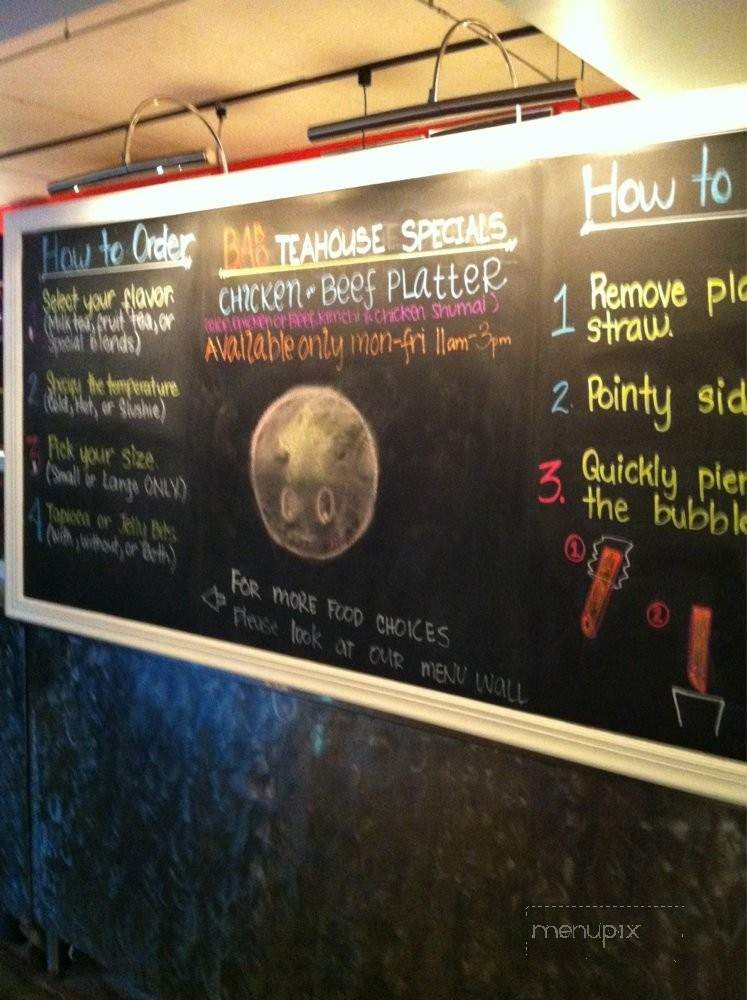 How to Order
Select your flavor.
(Milk tea, fruit tea, or
special blends)
2. the temperature
(Cold, Hot, or Slushie)
3. Pick your size.
(Small or Large ONLY)
4 Tapioca or Jelly Bits
(with, without, or both)
TEAHOUSE SPECIALS
CHICKEN or Beef PLATTER
chicken or Beef, kimchi & chicken shumai)
Available only mon-fri 11am-3pm
FOR MORE FOOD CHOICES
Please look at OUR MENU WALL
How to
1 Remove pla
straw.
2. Pointy sid
3. Quickly pier
the bubble
1
2
menupix